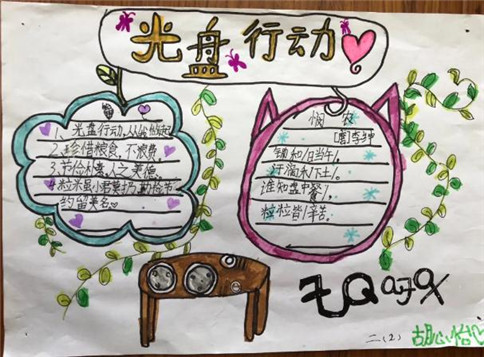 光盘行动
1、光盘行动,从我做起
2、珍惜粮食,不浪费。
3、节俭朴素,人之美德。
4、粒米虽小君莫扔,勤俭节
约留美名。
悯农
[唐]李绅
锄禾/日当午/,
汗滴禾/下土/。
谁知盘中餐/,
粒粒皆/辛苦。
二(2)
胡心怡